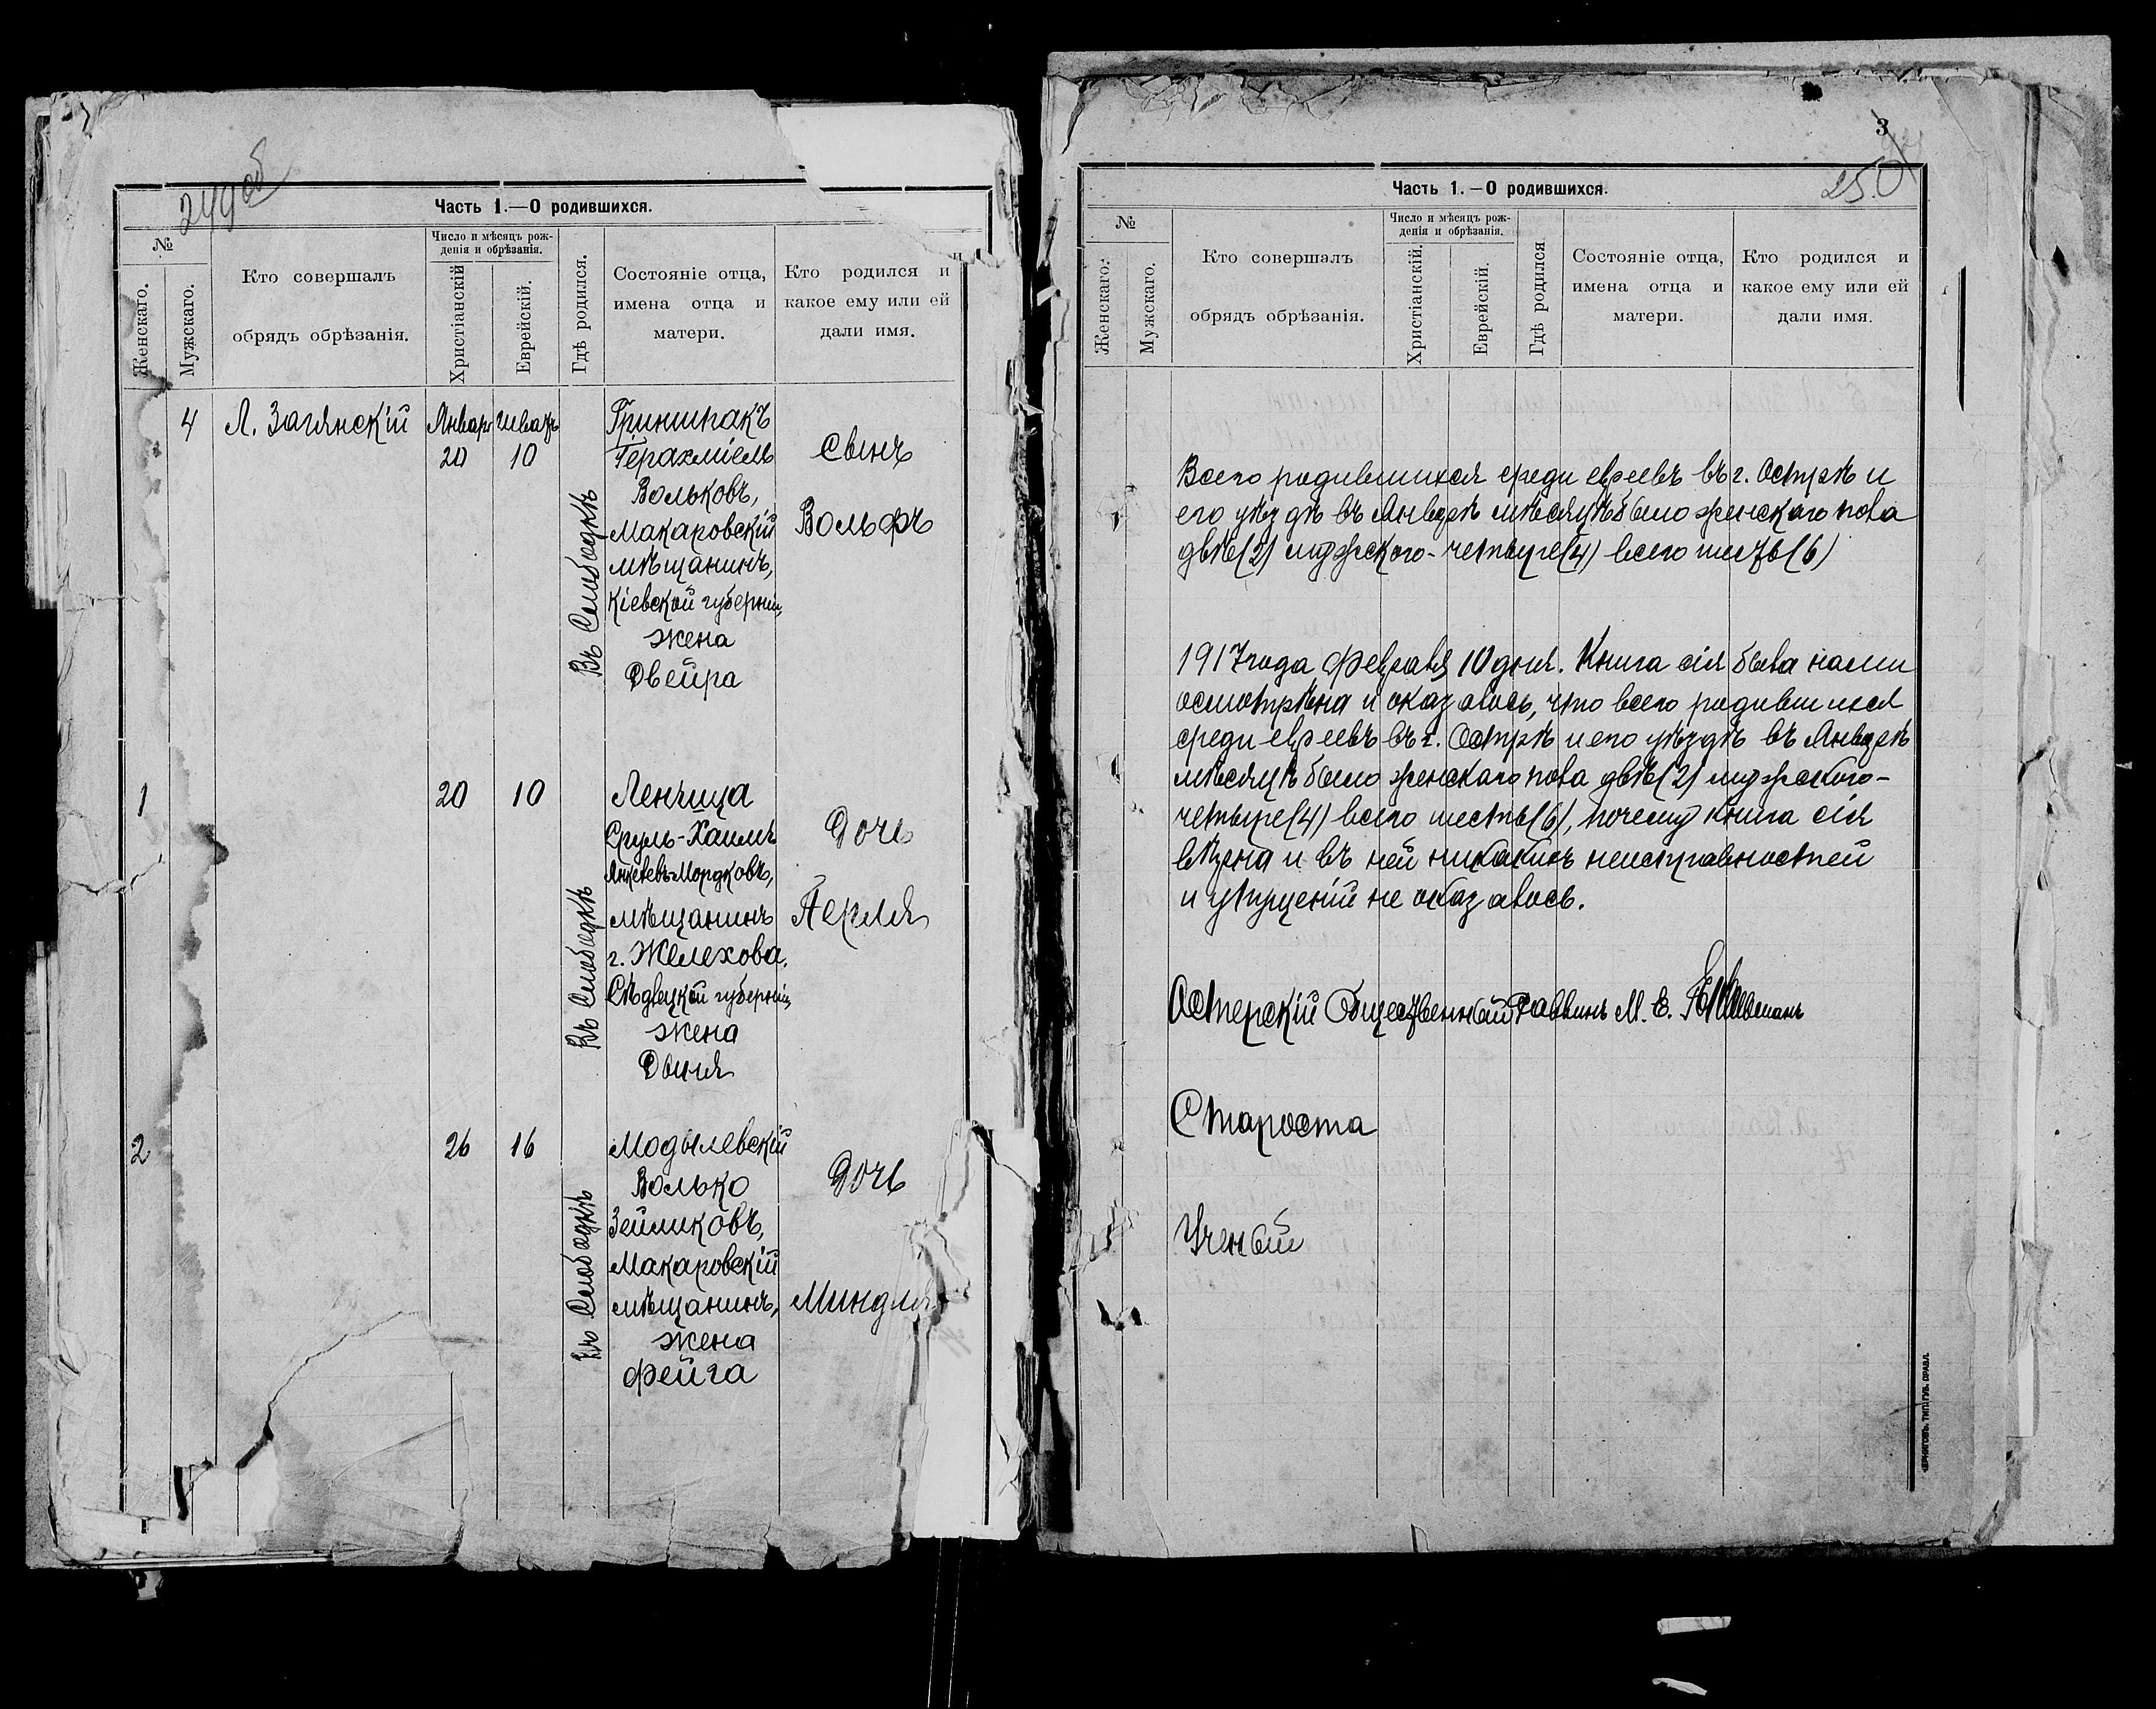 249об
Часть 1.—О родившихся.
№
Женскаго.
Мужскаго.
Кто совершалъ
обрядъ обрѣзанія.
Число и мѣсяцъ рож-
денія и обрѣзанія.
Христіанскій
Еврейскій.
Гдѣ родился.
Состояніе отца,
имена отца и
матери.
Кто родился и
какое ему или ей
дали имя.
4
Л. Загянскій
Январь
20
Шватъ
10
Въ Слободкѣ
Гриншпакъ
Іерахміель
Вольковъ,
Макаровскій
мѣщанинъ,
Кіевской губерніи,
жена
Двейра
Сынъ
Вольфъ
1
20
10
Въ Слободкѣ
Ленчица
Сруль-Хаимъ
Янкелевъ-Мордковъ,
мѣщанинъ
г. Желехова,
Сѣдлецкой губерніи,
жена
Двыня
Дочь
Перля
2
26
16
Въ Слободкѣ
Модылевскій
Волько
Зейликовъ,
Макаровскій
мѣщанинъ,
жена
Фейга
Дочь
Миндля
3
250
Часть 1.—О родившихся.
№
Женскаго.
Мужскаго.
Кто совершалъ
обрядъ обрѣзанія.
Число и мѣсяцъ рож-
денія и обрѣзанія.
Христіанскій.
Еврейскій.
Гдѣ родился
Состояніе отца,
имена отца и
матери.
Кто родился и
какое ему или ей
дали имя.
Всего родившихся среди евреевъ въ г. Острѣ и
его уѣздѣ въ Январѣ мѣсяцѣ было женскаго пола
двѣ (2) мужского - четыре (4) всего шесть (6)
1917 года Февраля 10 дня. Книга сія была нами
осмотрѣна и оказалось, что всего родившихся
среди евреевъ въ г. Острѣ и его уѣздѣ въ Январѣ
мѣсяцѣ было женскаго пола двѣ (2) мужского -
четыре (4) всего шесть (6), почему книга сія
вѣрна и въ ней никакихъ неисправностей
и упущеній не оказалось.
Остерскій Общественный Раввинъ М. Е.
Староста
Ученый
ЧЕРНИГОВЪ. ТИП. ГУБ. ПРАВЛ.